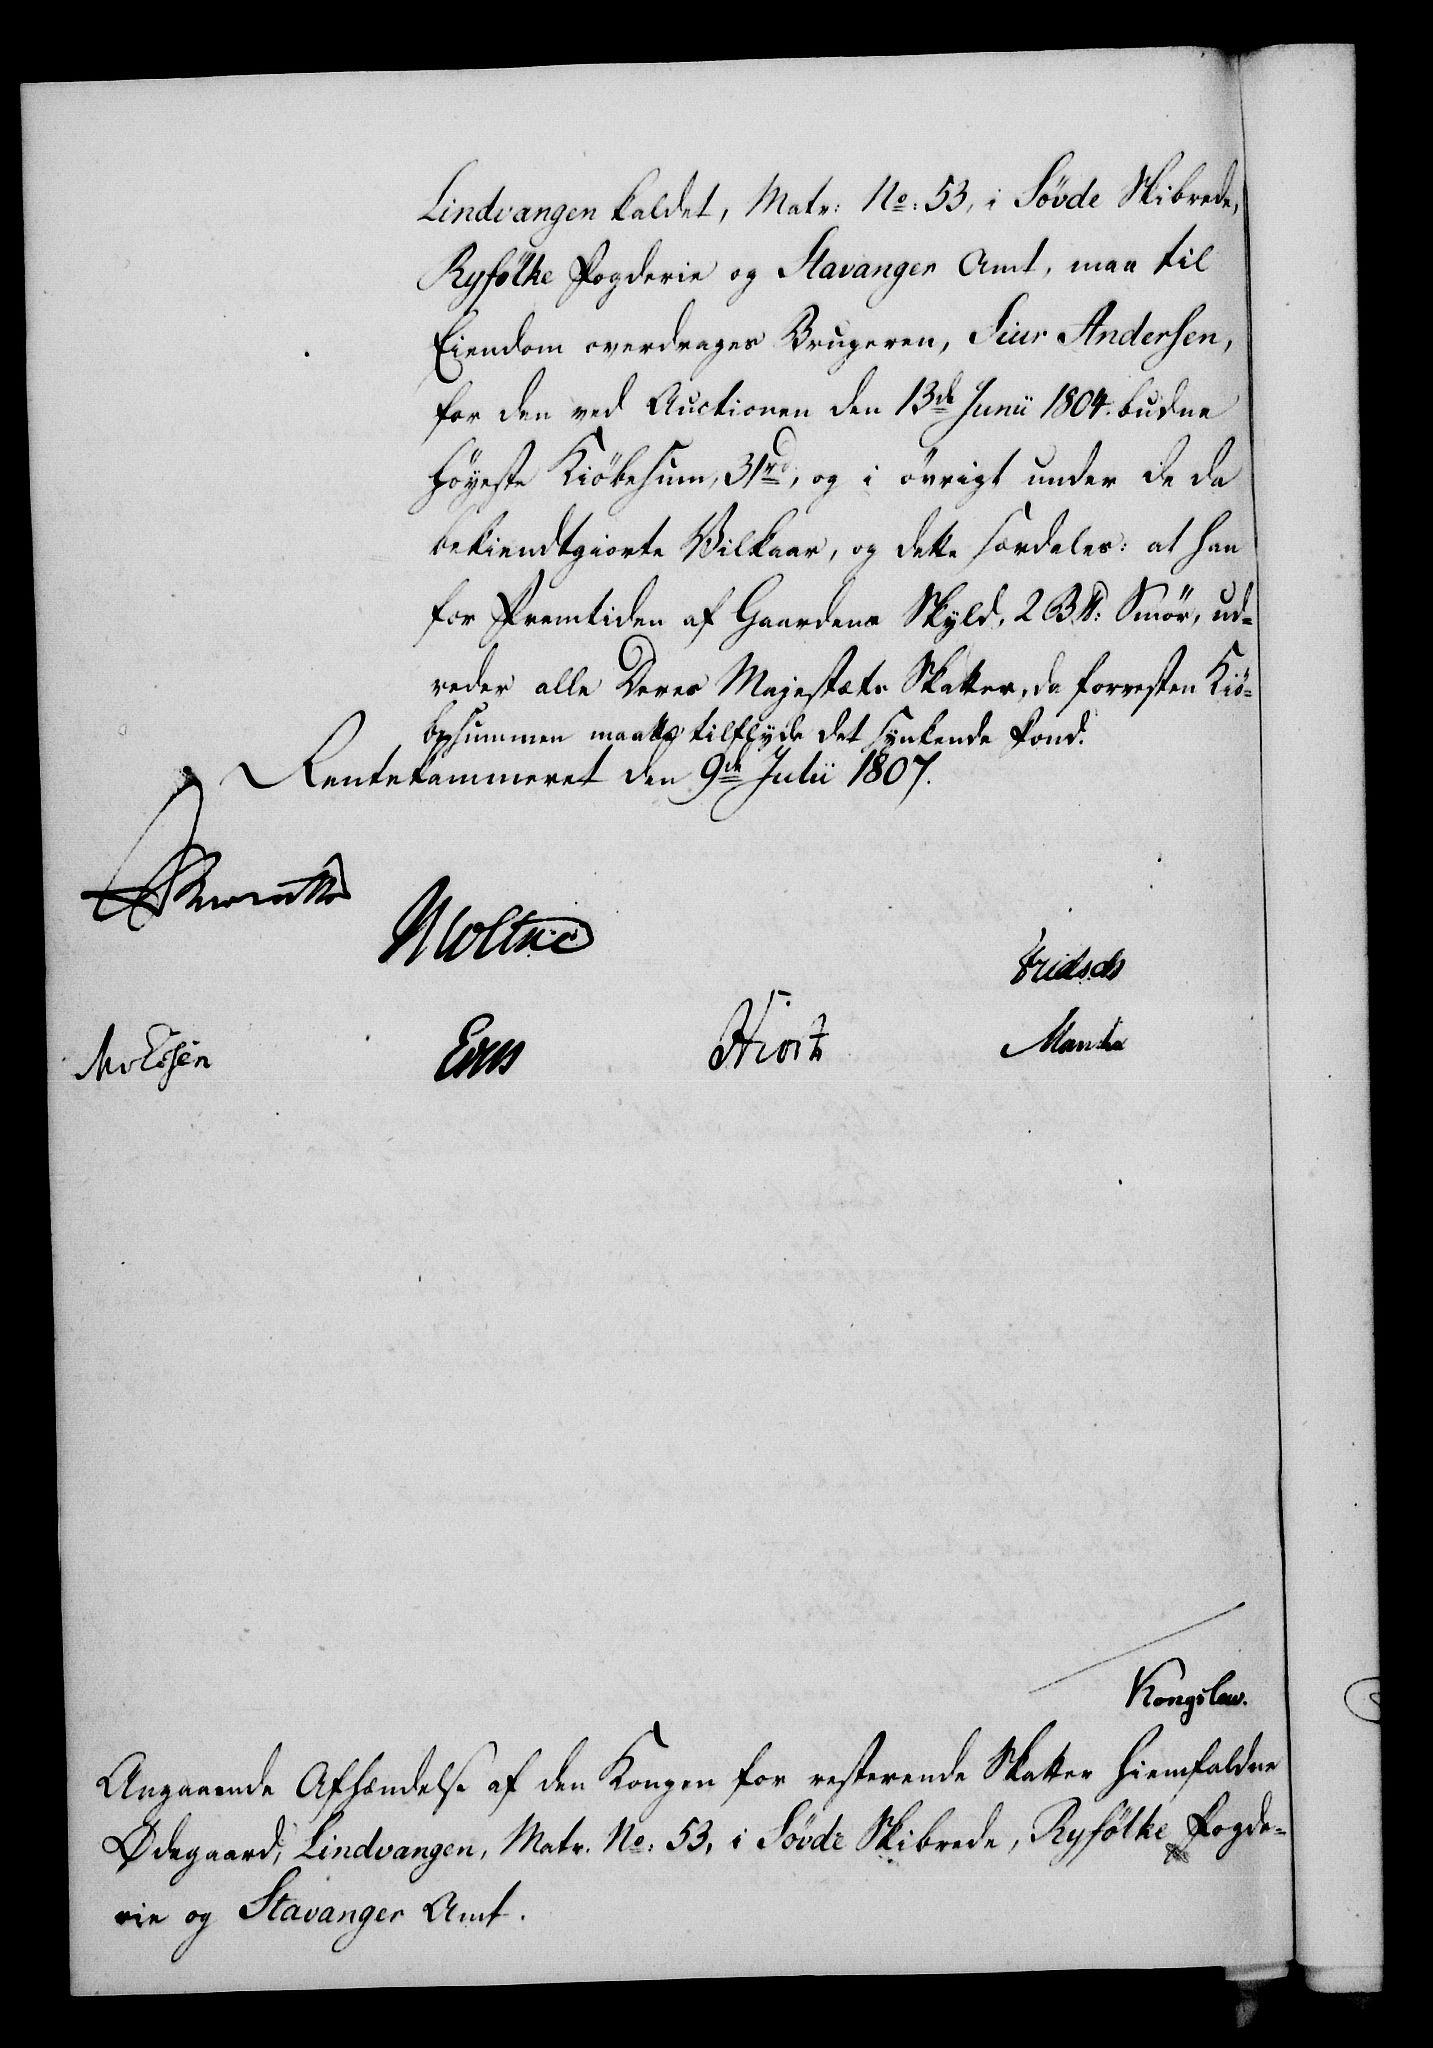 Lindvangen kaldet, Matr: No: 53, i Søvde Skibrede,
Ryfölke Fogderie og Stavanger Amt, maa til
Eiendom overdrages Brugeren, Siur Andersen,
for den ved Auctionen den 13de Junii 1804. budne
höyeste Kiöbesum, 31rd, og i övrigt under de da
bekiendtgiorte Vilkaar, og dette særdeles: at han
for Fremtiden af Gaardens Skyld, 2 B℔: Smör, ud-
reder alle Deres Majestæts Skatter, da forresten Kiö-
besummen maatte tilflyde det synkende Fond.
Rentekammeret den 9de Julii 1807.
Moltke
Hiort
Kongslew.
Angaaende Afhændelse af den Kongen for resterende Skatter hiemfaldne
Ødegaard, Lindvangen, Matr. No: 53, i Søvde Skibrede, Ryfölke Fogde-
rie og Stavanger Amt.